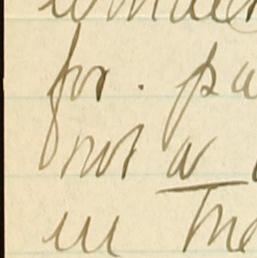 for. pa
not a
in the